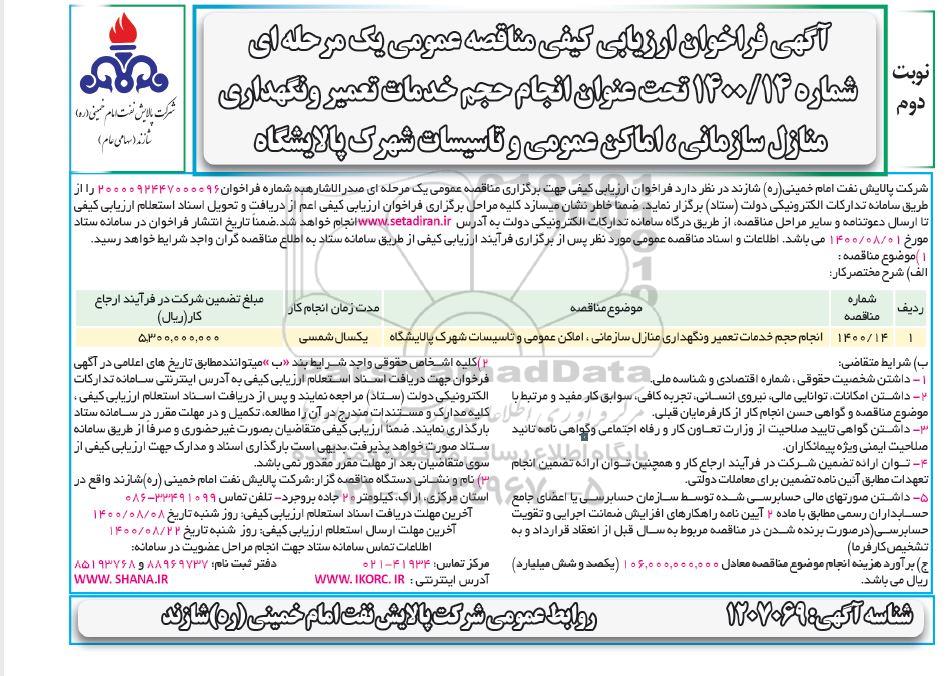 نوبت
دوم
آگهی فراخوان ارزیابی کیفی مناقصه عمومی یک مرحله ای
شماره ۱۴۰۰/۱۴ تحت عنوان انجام حجم خدمات تعمیر ونگهداری
منازل سازمانی ، اماکن عمومی و تاسیسات شهرک پالایشگاه
شرکت پالایش نفت امام خمینی(ره)
شازند(سهامی عام)
شرکت پالایش نفت امام خمینی(ره) شازند در نظر دارد فراخوان ارزیابی کیفی جهت برگزاری مناقصه عمومی یک مرحله ای صدرالاشارهبه شماره فراخوان۲۰۰۰۰۹۲۴۴۷۰۰۰۰۹۶ را از
طریق سامانه تدارکات الکترونیکی دولت (ستاد) برگزار نماید. ضمنا خاطر نشان میسازد کلیه مراحل برگزاری فراخوان ارزیابی کیفی اعم از دریافت و تحویل اسناد استعلام ارزیابی کیفی
تا ارسال دعوتنامه و سایر مراحل مناقصه، از طریق درگاه سامانه تدارکات الکترونیکی دولت به آدرس www.setadiran.irانجام خواهد شد.ضمناً تاریخ انتشار فراخوان در سامانه ستاد
مورخ ۱۴۰۰/۰۸/۰۱ می باشد. اطلاعات و اسناد مناقصه عمومی مورد نظر پس از برگزاری فرآیند ارزیابی کیفی از طریق سامانه ستاد به اطلاع مناقصه گران واجد شرایط خواهد رسید.
۱)موضوع مناقصه :
الف) شرح مختصرکار:
ردیف شماره مناقصه موضوع مناقصه مدت زمان انجام کار مبلغ تضمین شرکت در فرآیند ارجاع کار(ریال)
۱ ۱۴۰۰/۱۴ انجام حجم خدمات تعمیر ونگهداری منازل سازمانی ، اماکن عمومی و تاسیسات شهرک پالایشگاه یکسال شمسی ۵،۳۰۰،۰۰۰،۰۰۰
ب) شرایط متقاضی:
۱- داشتن شخصیت حقوقی ، شماره اقتصادی و شناسه ملی.
۲- داشتن امکانات، توانایی مالی، نیروی انسانی، تجربه کافی، سوابق کار مفید و مرتبط با
موضوع مناقصه و گواهی حسن انجام کار از کارفرمایان قبلی.
۳- داشتن گواهی تایید صلاحیت از وزارت تعاون کار و رفاه اجتماعی وگواهی نامه تائید
صلاحیت ایمنی ویژه پیمانکاران.
۴- توان ارائه تضمین شرکت در فرآیند ارجاع کار و همچنین توان ارائه تضمین انجام
تعهدات مطابق آئین نامه تضمین برای معاملات دولتی.
۵- داشتن صورتهای مالی حسابرسی شده توسط سازمان حسابرسی یا اعضای جامع
حسابداران رسمی مطابق با ماده ۲ آیین نامه راهکارهای افزایش ضمانت اجرایی و تقویت
حسابرسی(درصورت برنده شدن در مناقصه مربوط به سال قبل از انعقاد قرارداد و به
تشخیص کارفرما)
ج) برآورد هزینه انجام موضوع مناقصه معادل ۱۰۶،۰۰۰،۰۰۰،۰۰۰ (یکصد و شش میلیارد)
ریال می باشد.
۲)کلیه اشخاص حقوقی واجد شرایط بند «ب »میتوانندمطابق تاریخ های اعلامی در آگهی
فرخوان جهت دریافت اسناد استعلام ارزیابی کیفی به آدرس اینترنتی سامانه تدارکات
الکترونیکی دولت (ستاد) مراجعه نمایند و پس از دریافت اسناد استعلام ارزیابی کیفی ،
کلیه مدارک و مستندات مندرج در آن را مطالعه، تکمیل و در مهلت مقرر در سامانه ستاد
بارگذاری نمایند. ضمنا ارزیابی کیفی متقاضیان بصورت غیرحضوری و صرفا از طریق سامانه
ستاد صورت خواهد پذیرفت بدیهی است بارگذاری اسناد و مدارک جهت ارزیابی کیفی از
سوی متقاضیان بعد از مهلت مقرر مقدور نمی باشد.
۳) نام و نشانی دستگاه مناقصه گزار:شرکت پالایش نفت امام خمینی (ره)شازند واقع در
استان مرکزی، اراک، کیلومتر۲۰ جاده بروجرد- تلفن تماس ۳۳۴۹۱۰۹۹-۰۸۶
آخرین مهلت دریافت اسناد استعلام ارزیابی کیفی: روز شنبه تاریخ ۱۴۰۰/۰۸/۰۸
آخرین مهلت ارسال استعلام ارزیابی کیفی: روز شنبه تاریخ ۱۴۰۰/۰۸/۲۲
اطلاعات تماس سامانه ستاد جهت انجام مراحل عضویت در سامانه:
مرکز تماس: ۴۱۹۳۴-۰۲۱ دفتر ثبت نام: ۸۸۹۶۹۷۳۷ و ۸۵۱۹۳۷۶۸
آدرس اینترنتی : WWW. IKORC. IR WWW. SHANA.IR
ParsNamadData
شناسه آگهی: ۱۲۰۷۰۶۹ روابط عمومی شرکت پالایش نفت امام خمینی (ره) شازند